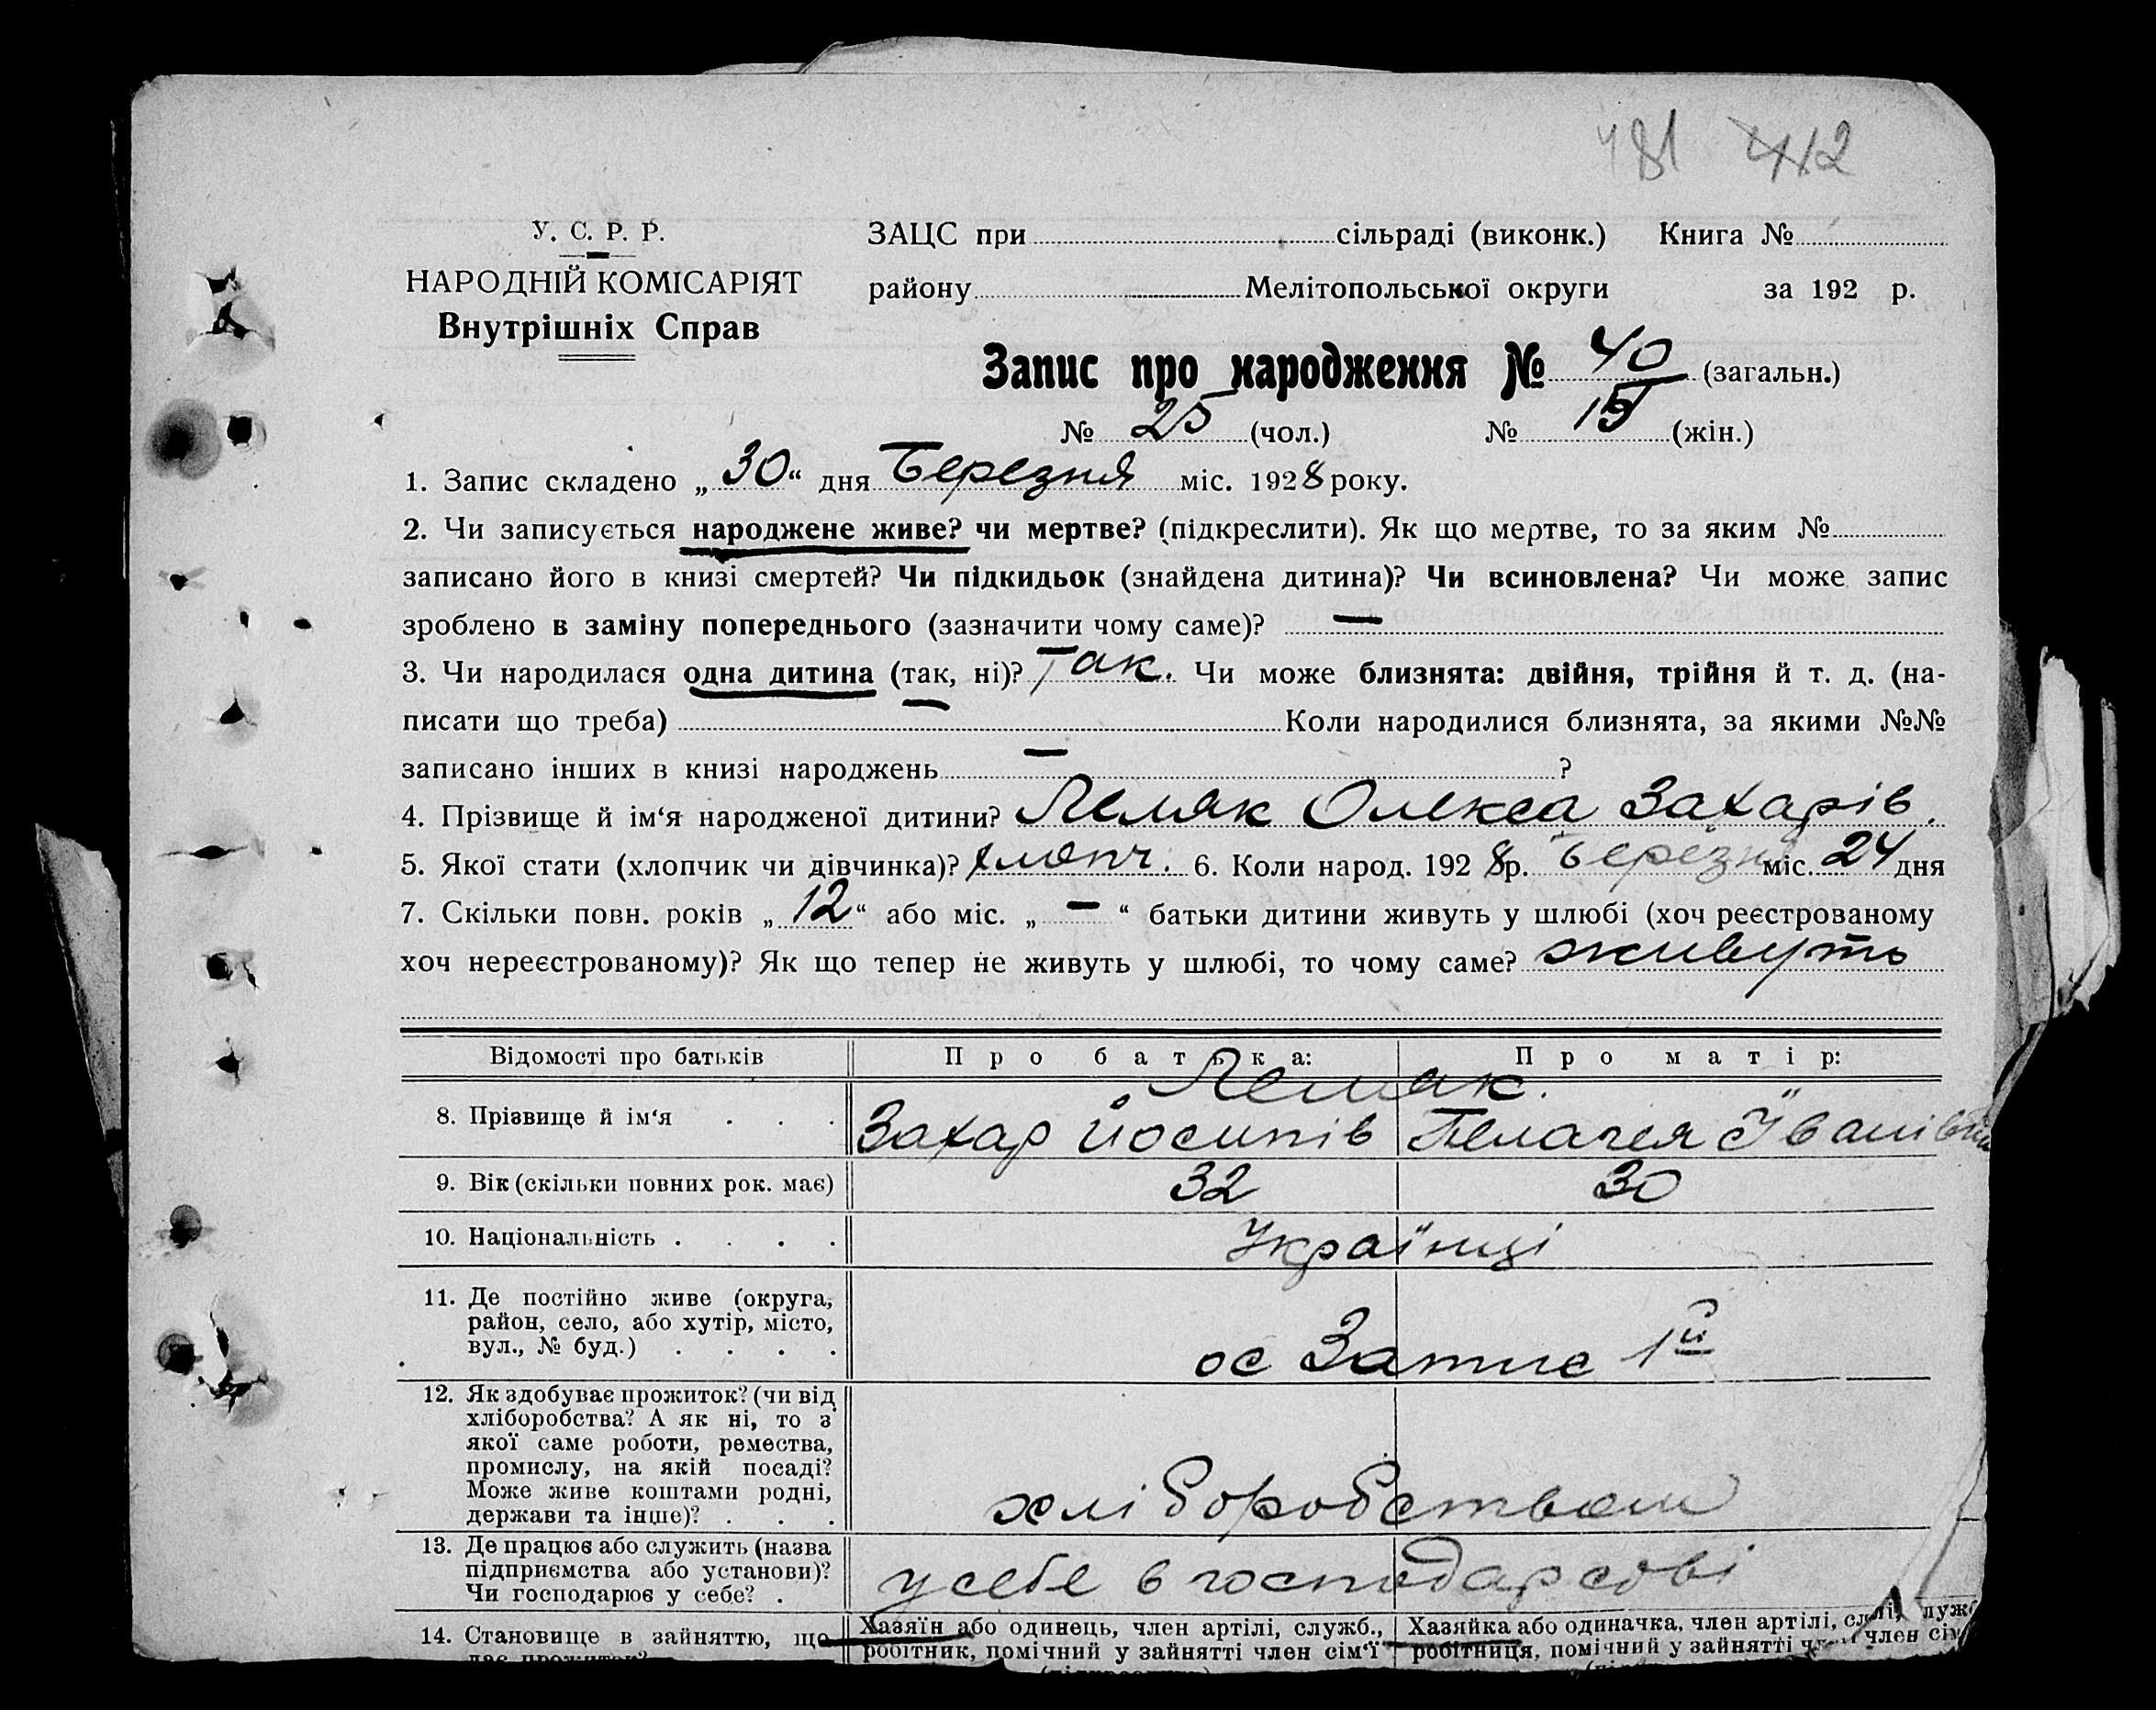 481 412
У. С. Р. Р.
НАРОДНІЙ КОМІСАРІЯТ
Внутрішніх Справ
ЗАЦС при сільраді (виконк.) Книга №
району Мелітопольської округи за 192 р.
Запис про народження № 40 (загальн.)
№ 25 (чол.) № 15 (жін.)
1. Запис складено „30“ дня Березня міс. 1928 року.
2. Чи записується народжене живе? чи мертве? (підкреслити). Як що мертве, то за яким №
записано його в книзі смертей? Чи підкидьок (знайдена дитина)? Чи всиновлена? Чи може запис
зроблено в заміну попереднього (зазначити чому саме)? —
3. Чи народилася одна дитина (так, ні)? Так. Чи може близнята: двійня, трійня й т. д. (на-
писати що треба) — Коли народилися близнята, за якими №№
записано інших в книзі народжень — ?
4. Прізвище й ім‘я народженої дитини? Лемяк Олекса Захарів.
5. Якої стати (хлопчик чи дівчинка)? хлопч. 6. Коли народ. 1928 р. Березня міс. 24 дня
7. Скільки повн. років „12“ або міс. „—“ батьки дитини живуть у шлюбі (хоч реєстрованому
хоч нереєстрованому)? Як що тепер не живуть у шлюбі, то чому саме? живуть
Відомості про батьків Про батька: Про матір:
Лемяк.
8. Прізвище й ім‘я . . . Захар Йосипів Пелагея Їванівна
9. Вік (скільки повних рок. має) 32 30
10. Національність . . . . Українці
11. Де постійно живе (округа,
район, село, або хутір, місто,
вул., № буд.) . . . . ос Затише 1й
12. Як здобуває прожиток? (чи від
хліборобства? А як ні, то з
якої саме роботи, ремества,
промислу, на якій посаді?
Може живе коштами родні,
держави та інше)? . . . хліборобством
13. Де працює або служить (назва
підприємства або установи)?
Чи господарює у себе? . у себе в господарсові
14. Становище в зайняттю, що Хазяїн або одинець, член артілі, служб., Хазяйка або одиначка, член артілі,
дає прожиток? робітник, помічний у зайнятті член сім‘ї робітниця, помічний у зайнятті член сім